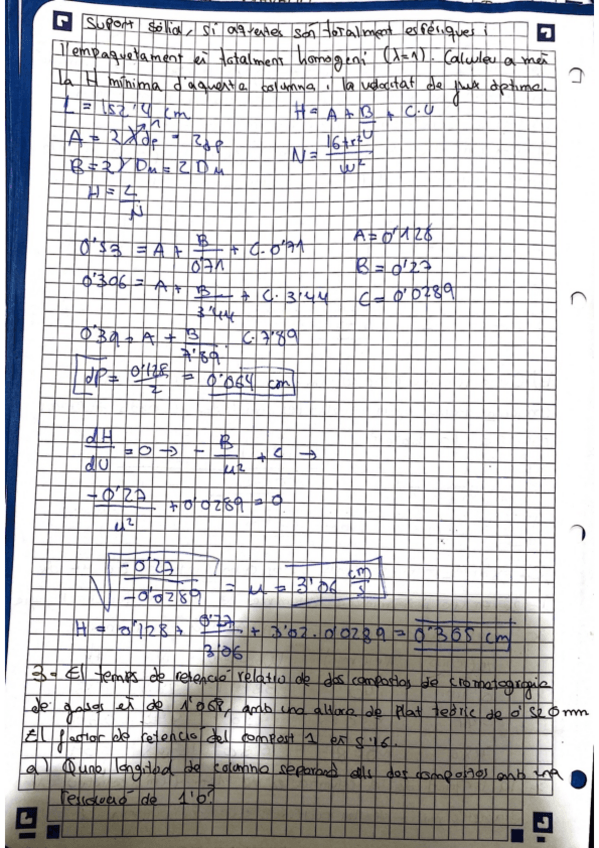 suport sòlid, si aquestes són totalment esfèriques i
l'empaquetament és totalment homogeni (λ=1). Calculeu a més
la H mínima d'aquesta columna i la velocitat de flux òptima.
L = 152'4 cm
H = A + B/U + C·U
A = 2λdp = 2dp
N = 16tr²/w²
B = 2γDm = 2Dm
H = L/N
0'53 = A + B/0'71 + C·0'71
A = 0'128
0'306 = A + B/3'44 + C·3'44
B = 0'27
C = 0'0289
0'39 = A + B/7'89 C·7'89
dP = 0'128/2 = 0'064 cm
dH/dU = 0 → - B/u² + C →
-0'27/u² + 0'0289 = 0
√(-0'27/-0'0289) = u = 3'06 cm/s
H = 0'128 + 0'27/3'06 + 3'02·0'0289 = 0'305 cm
3- El temps de retenció relatiu de dos compostos de cromatografia
de gasos és de 1'068, amb una altura de plat teòric de 0'520mm
El factor de retenció del compost 1 és 5'16.
a) Quna longitud de columna separarà els dos compostos amb una
resolució de 1'0?